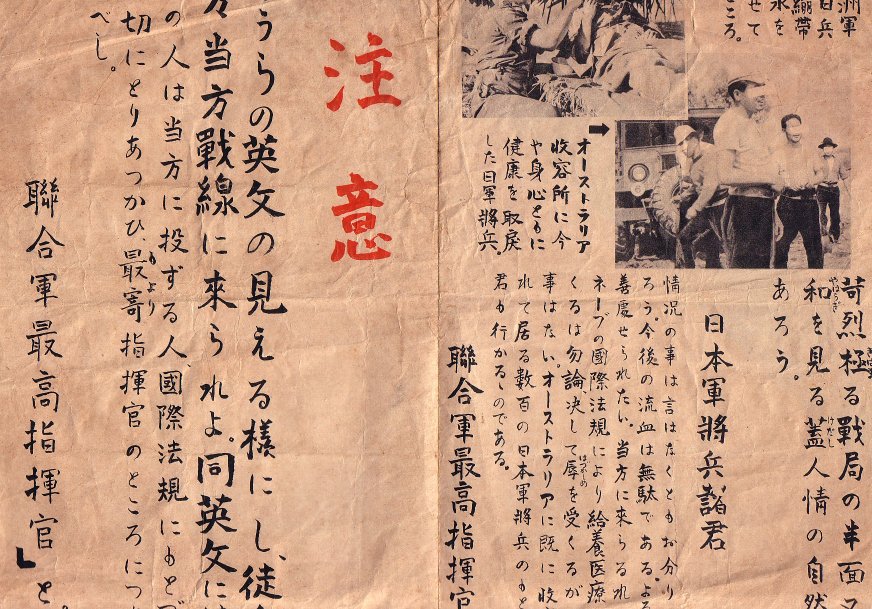 洲軍
日兵
繃帯
水を
せて
ころ。
オーストラリア
收容所に今
や身心ともに
健康を取戻
した日軍將兵。
苛烈極る戰局の半面
和を見る蓋人情の自然
あろう。
日本軍將兵諸君
情況の事は言はなくともお分り
ろう。今後の流血は無駄であるよろ
善處せられたい。当方に来らるれ
ネーブの國際法規により給養医療
くるは勿論決して辱を受くるが
事はない。オーストラリアに既に收
れて居る数百の日本軍將兵のもと
君も行かるゝのである。
聯合軍最高指揮官
注意
うらの英文の見える樣にし、徒
当方戰線に来られよ。同英文に
の人は当方に投ずる人、國際法規にもとづ
切にとりあつかひ、最寄指揮官のところにつ
べし。
聯合軍最高指揮官」と。